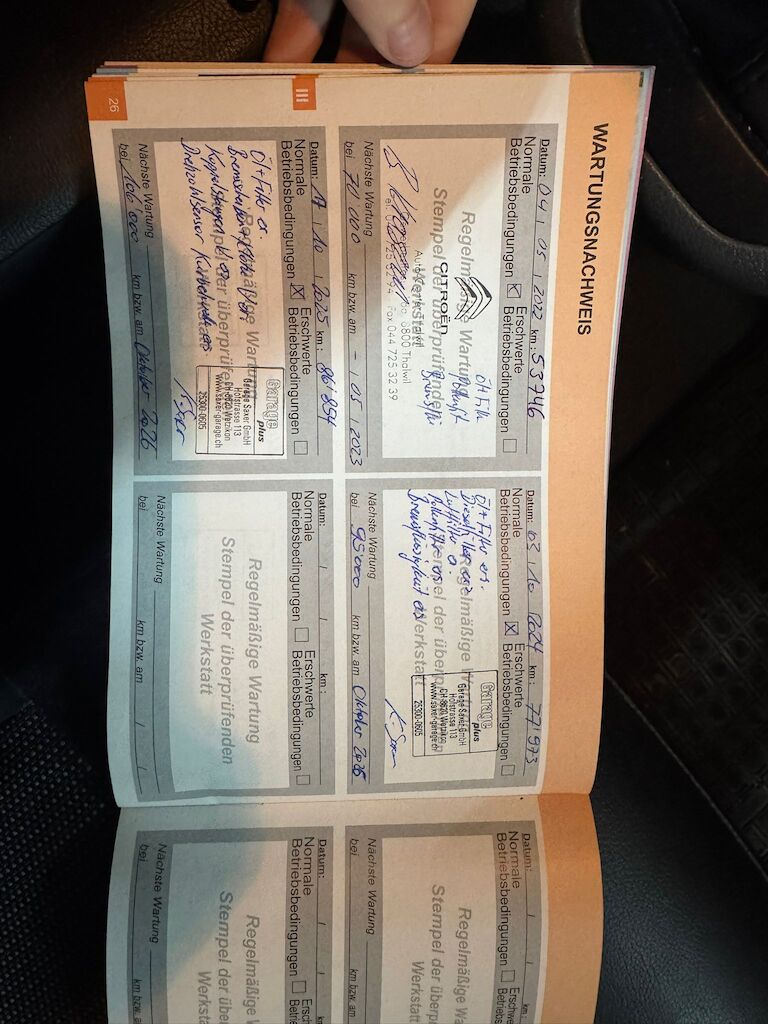 WARTUNGSNACHWEIS
Datum: 04 / 05 / 2022 km: 53746
Normale Betriebsbedingungen Erschwerte Betriebsbedingungen
Regelmäßige Wartung
Stempel der überprüfenden
Werkstatt
CITROËN
8800 Thalwil
Fax 044 725 32 39
Öl + Filter
Nächste Wartung
bei 70 000 km bzw. am - / 05 / 2023
Datum: 03 / 10 / 2024 km: 77'973
Normale Betriebsbedingungen X Erschwerte Betriebsbedingungen
Öl + Filter er.
Dieselfilter ers.
Luftfilter e.
Pollenfilter ers.
Bremsflüssigkeit ers.
Regelmäßige W
Stempel der über
Werkstatt
Garage plus
Garage Saxer GmbH
Hofstrasse 113
CH-8620 Wetzikon
www.saxer-garage.ch
25300-0605
Nächste Wartung
bei 95'000 km bzw. am Oktober
Datum: 10 / 2025 km: 86'254
Normale Betriebsbedingungen X Erschwerte Betriebsbedingungen
Öl + Filter er.
Regelmäßige Wartung
Stempel der überprüfenden
Werkstatt
Drehzahlsensor
Garage plus
Garage Saxer GmbH
Hofstrasse 113
CH-8620 Wetzikon
www.saxer-garage.ch
25300-0605
Nächste Wartung
bei 106'000 km bzw. am Oktober 2026
Datum: / / km:
Normale Betriebsbedingungen Erschwerte Betriebsbedingungen
Regelmäßige Wartung
Stempel der überprüfenden
Werkstatt
Nächste Wartung
bei km bzw. am / /
III
26
Datum: / / km:
Normale Betriebsbedingungen Erschwerte Betriebs
Regelmäßige W
Stempel der übe
Werkstatt
Nächste Wartung
bei km bzw. am
Datum: / / km:
Normale Betriebsbedingungen Ersch Betrieb
Regelmäßige W
Stempel der übe
Werkstatt
Nächste Wartung
bei km bzw. am